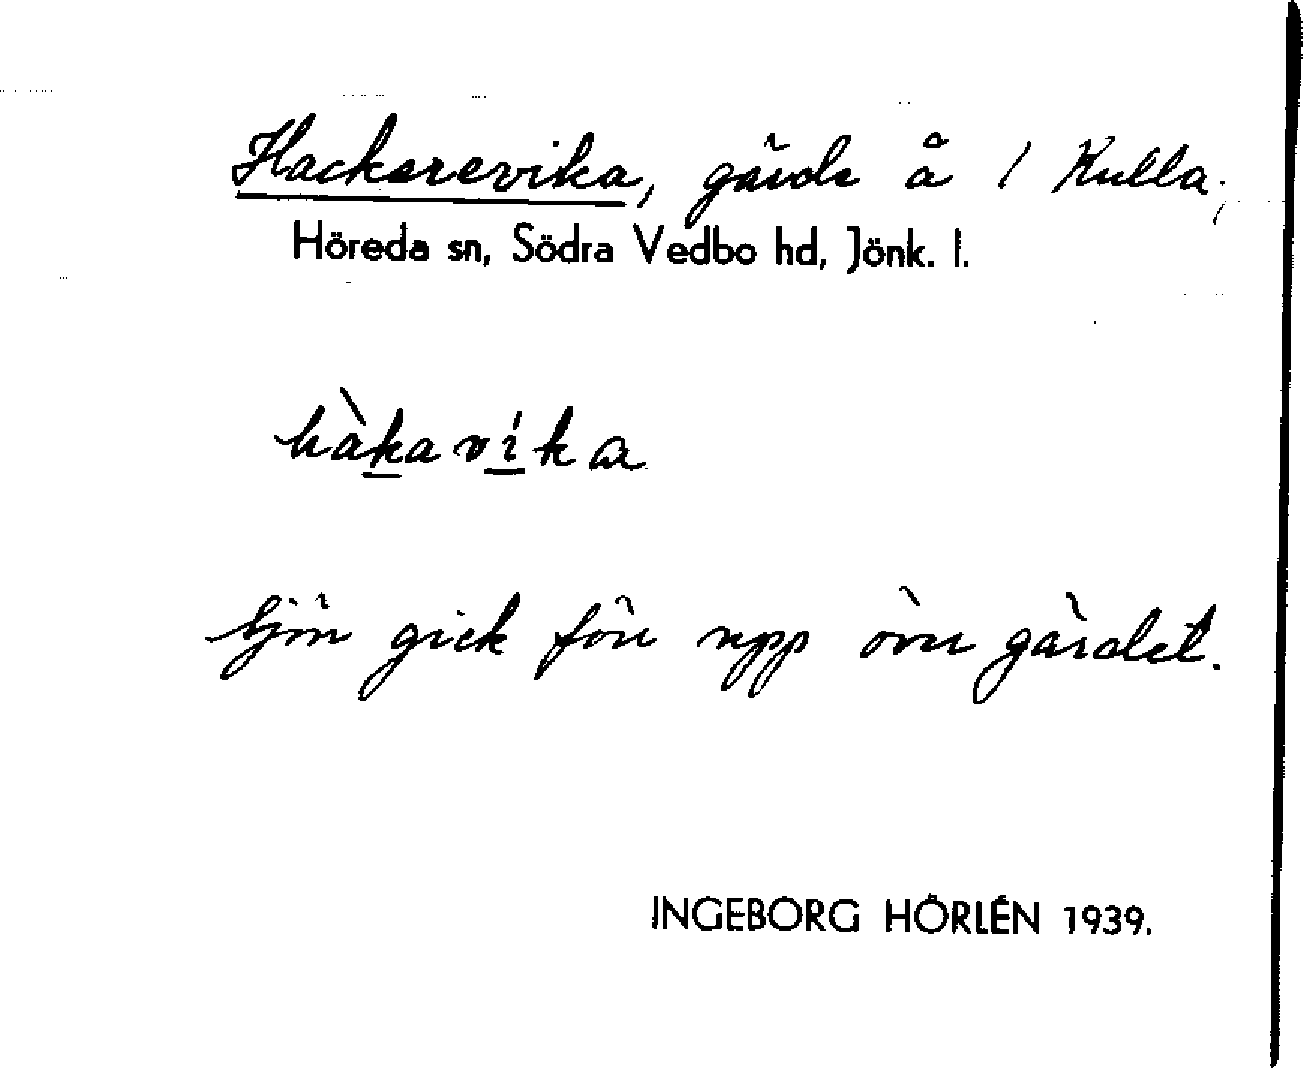 Hackarevika, gärde å 1 Kulla;
Höreda sn, Södra Vedbo hd, Jönk. l.
hàkavíka
Sjön gick förr upp över gärdet.
INGEBORG HÖRLÉN 1939.